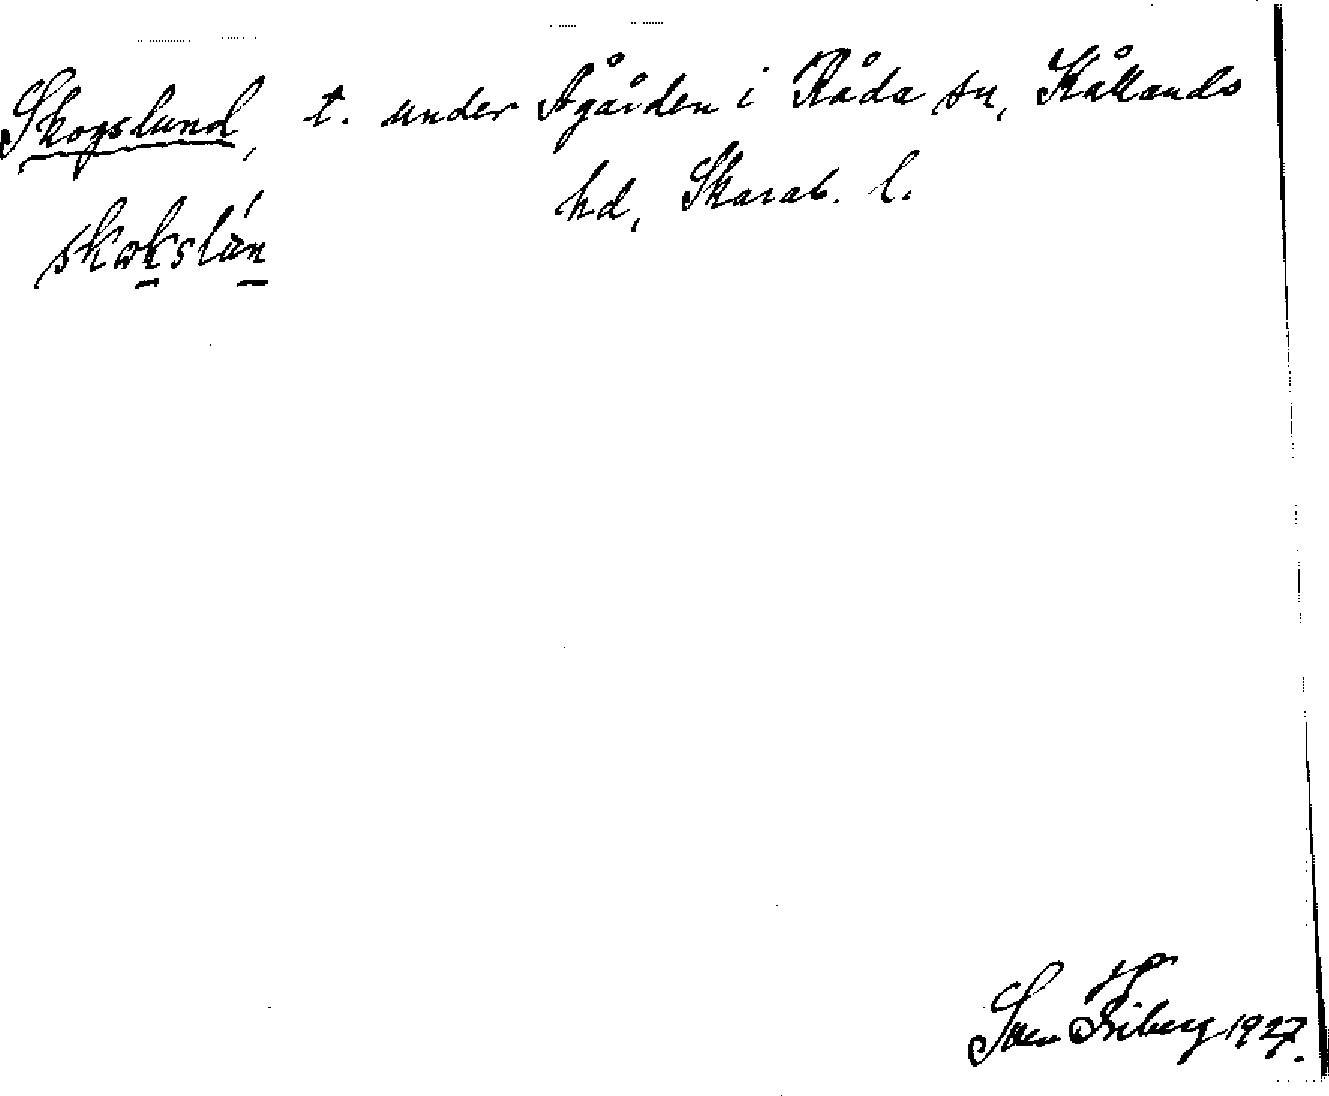 Skogslund, t. under Ågården i Råda sn, Kållands
hd, Skarab. l.
skokslún
Sven Friberg 1927.